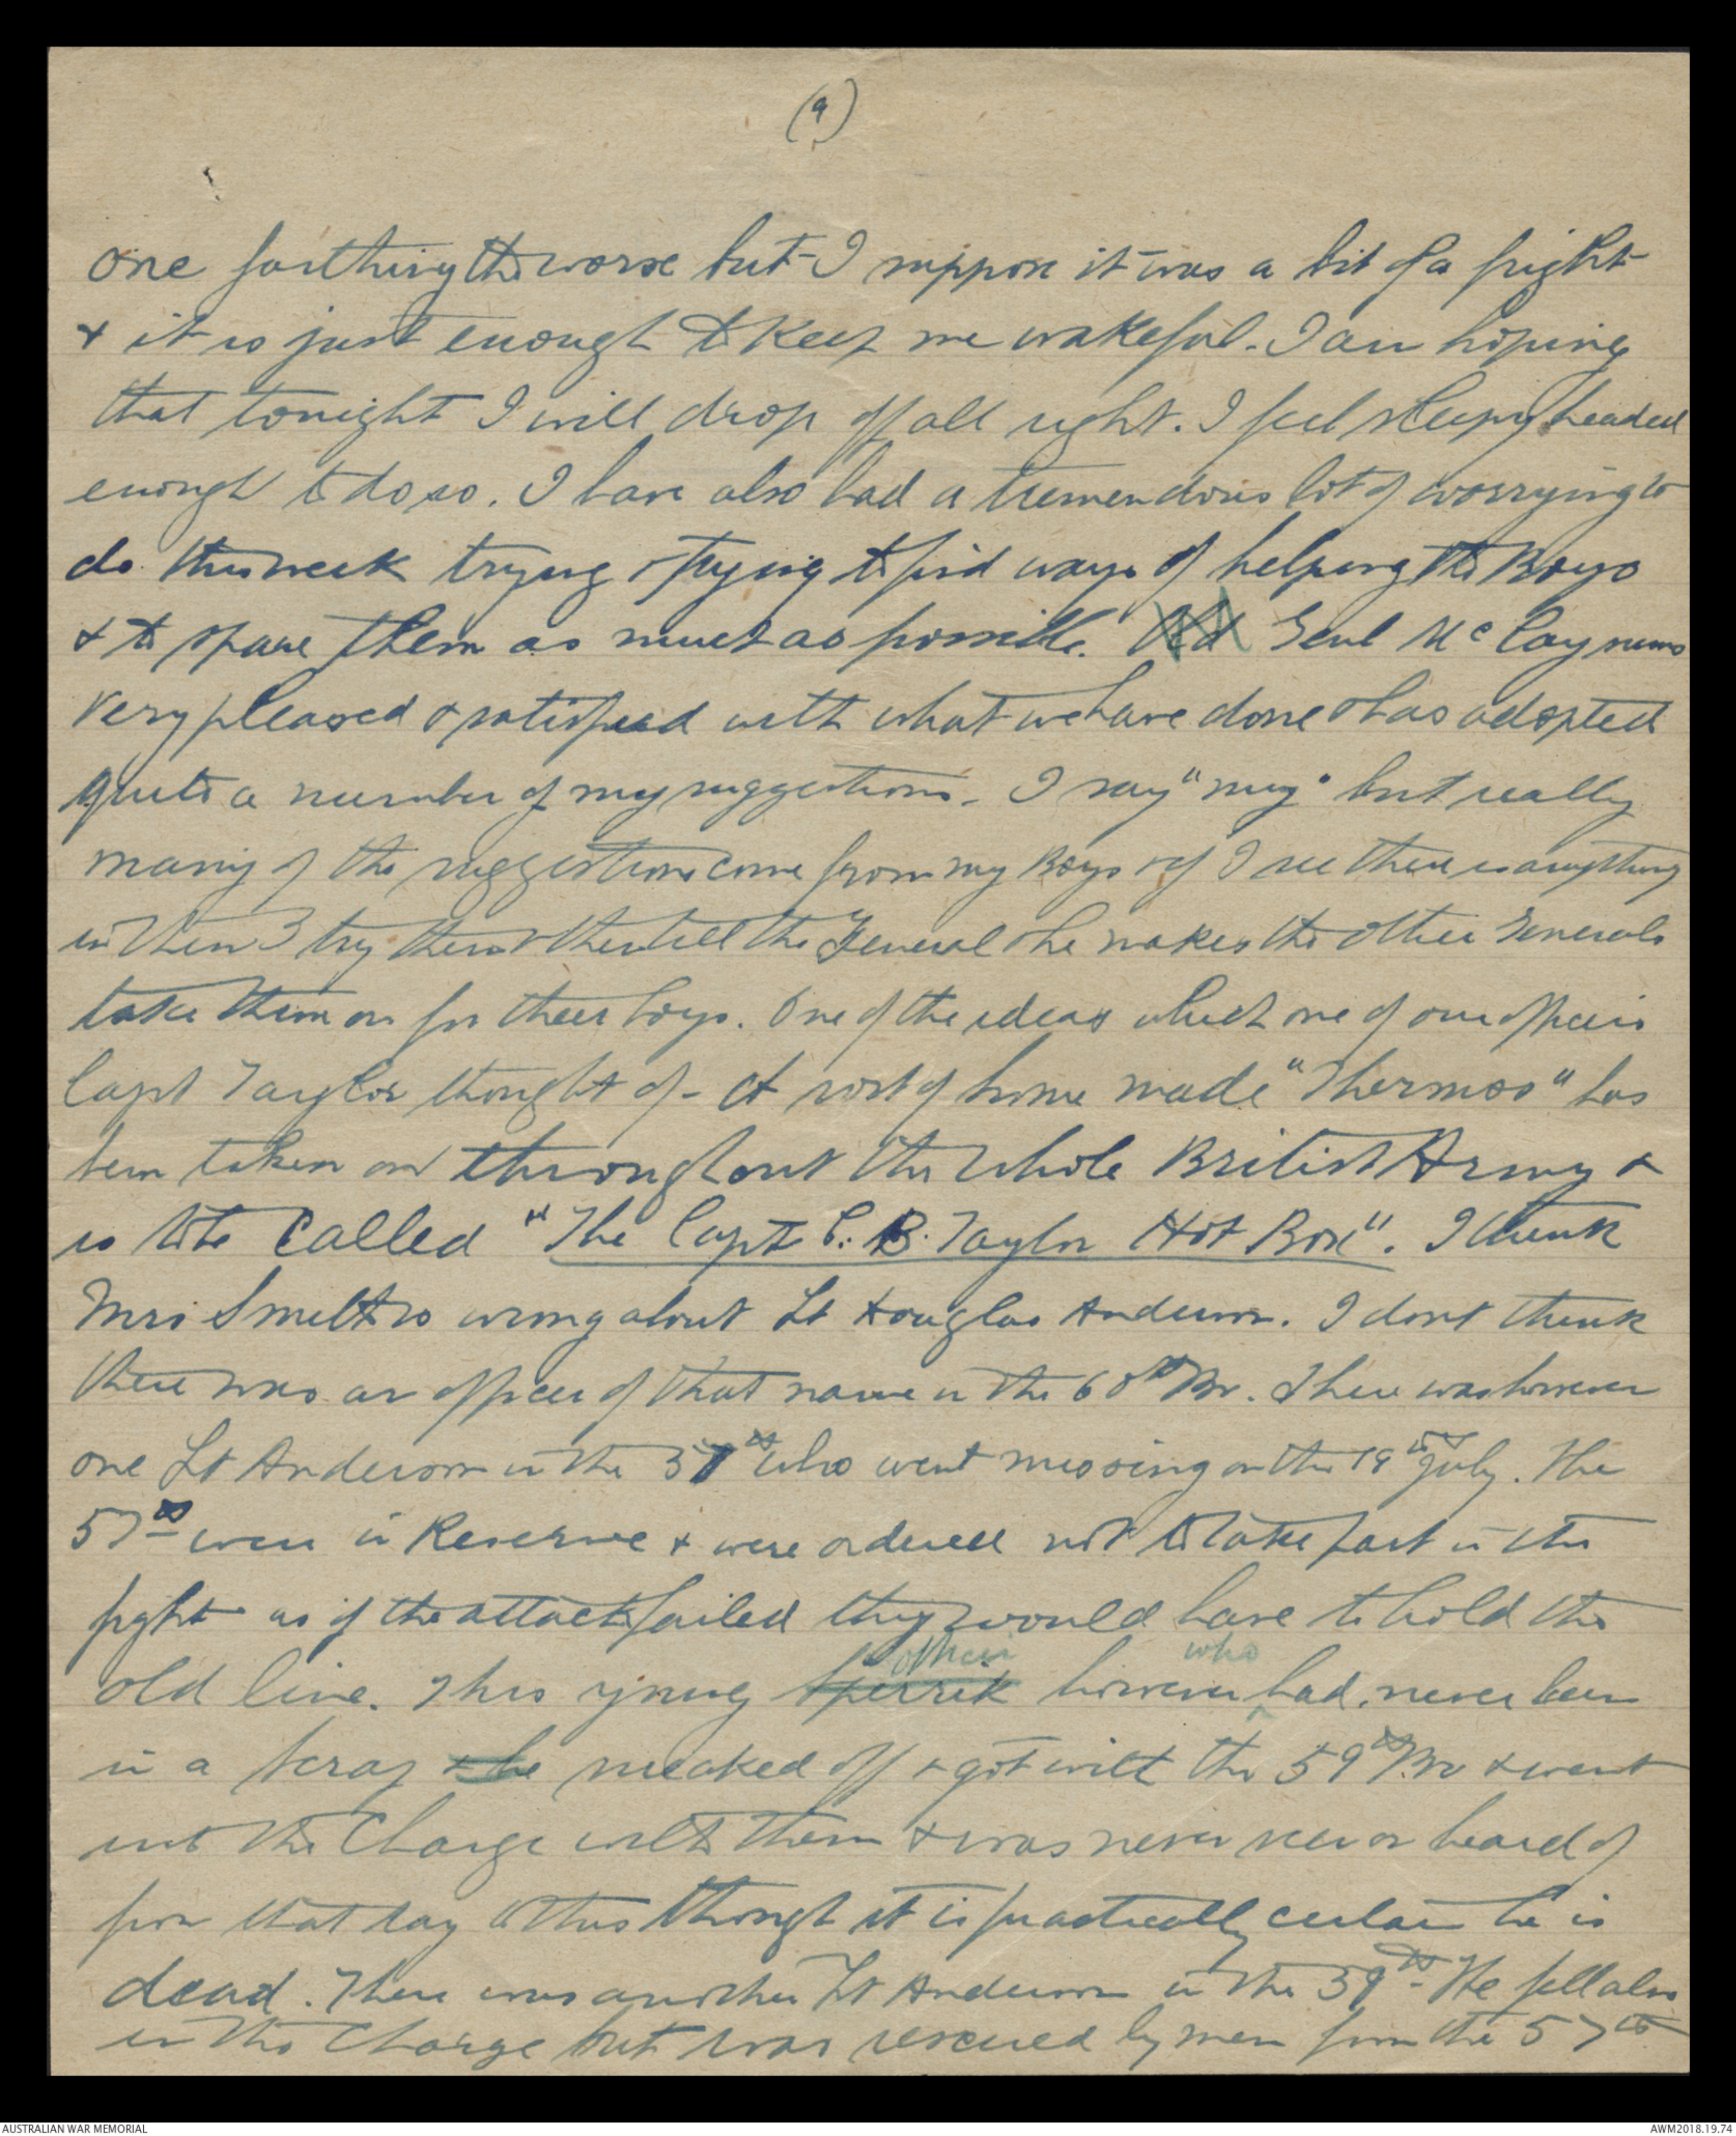 (9)
one farthing the worse but I suppose it was a bit of a fright
& it is just enough to keep me wakeful. I am hoping
that tonight I will drop off all right. I feel sleepy headed
enough to do so. I have also had a tremendous lot of worrying to
do this week trying & trying to find ways of helping the Boys
& to spare them as much as possible. Old Genl McCay seems
very pleased & satisfied with what we have done & has adopted
quite a number of my suggestions. I say "my" but really
many of the suggestions come from my Boys & if I see there is anything
in them I try them & then tell the General & he makes the other Generals
take them on for their boys. One of the ideas which one of our officers
Capt Taylor thought of - A sort of home made "Thermos" has
been taken on throughout the whole British Army &
is to be called "The Capt C. B. Taylor Hot Box". I think
Mrs Smelt is wrong about Lt Douglas Anderson. I dont think
there was an officer of that name in the 60th Bn. There was however
one Lt Anderson in the 57th who went missing on the 19th July. The
57th were in Reserve & were ordered not to take part in the
fight as if the attack failed they would have to hold the
old line. This young officer however who had never been
in a scrap & he sneaked off & got with the 59th Bn & went
into the Charge with them & was never seen or heard of
from that day to this though it is practically certain he is
dead. There was another Lt Anderson in the 59th. He fell also
in the Charge but was rescued by men from the 57th
AUSTRALIAN WAR MEMORIAL
AWM2018.19.74